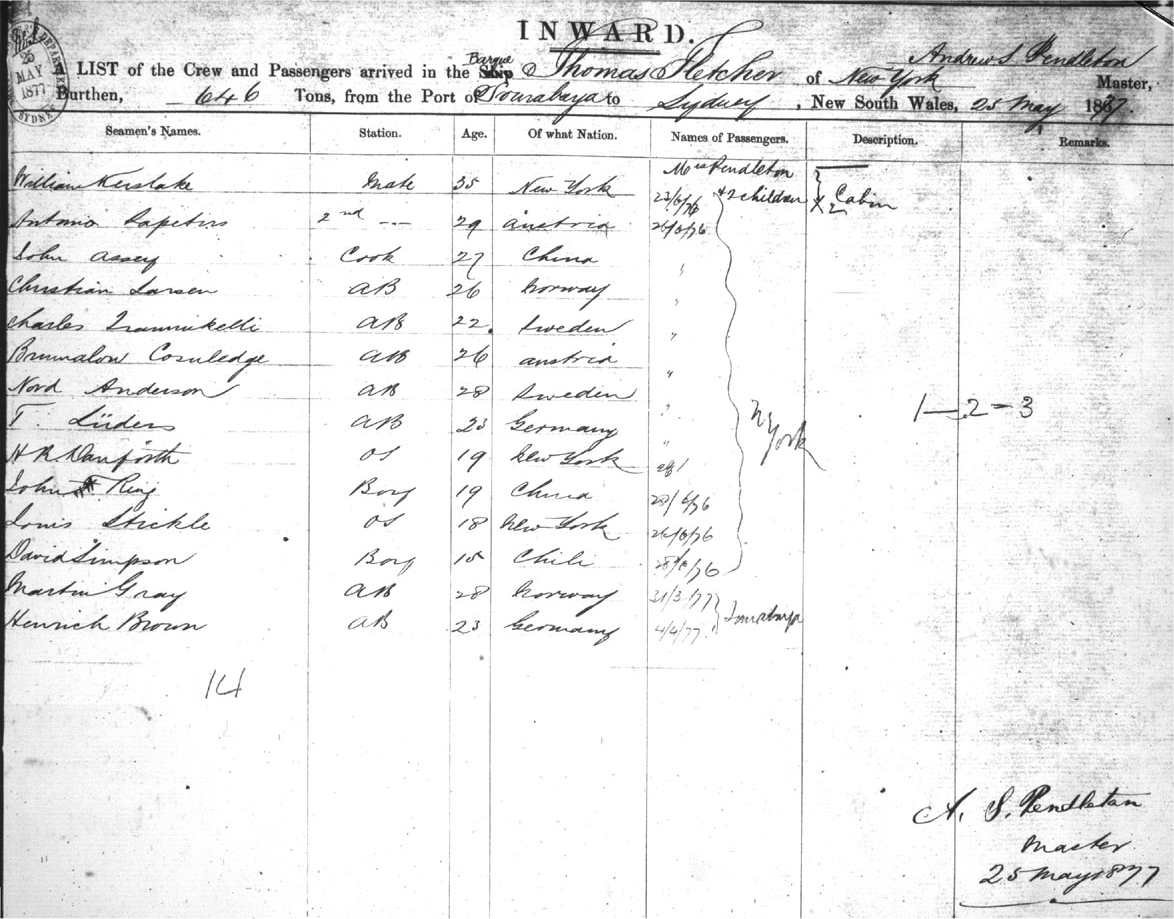 INWARD.
25
MAY
1877
SYDNEY
Barque Andrew S. Pendleton
A LIST of the Crew and Passengers arrived in the Ship Thomas Fletcher of New York Master,
Burthen, 646 Tons, from the Port of Sourabaya to Sydney, New South Wales, 25 May 1867.
Seamen's Names. Station. Age. Of what Nation. Names of Passengers. Description. Remarks.
Mrs Pendleton
William Kerslake Mate 35 New York & 2 children Cabin
Antonio 2nd --- 29 Austria 26/6/76
John Assey Cook 27 China "
Christian Larsen AB 26 Norway "
Charles AB 22. Sweden "
AB 26 Austria "
Nord Anderson AB 28 Sweden "
T. Lüders AB 23 Germany " N York 1 — 2 = 3
H R. Danforth OS 19 New York
John Ring Boy 19 China 28/6/76
Louis Stickle OS 18 New York 26/6/76
David Simpson Boy 15 Chili 28/6/76
Martin Gray AB 28 Norway 31/3/77
Henrich Brown AB 23 Germany 4/4/77 Sourabaya
14
A. S. Pendleton
Master
25 May 1877